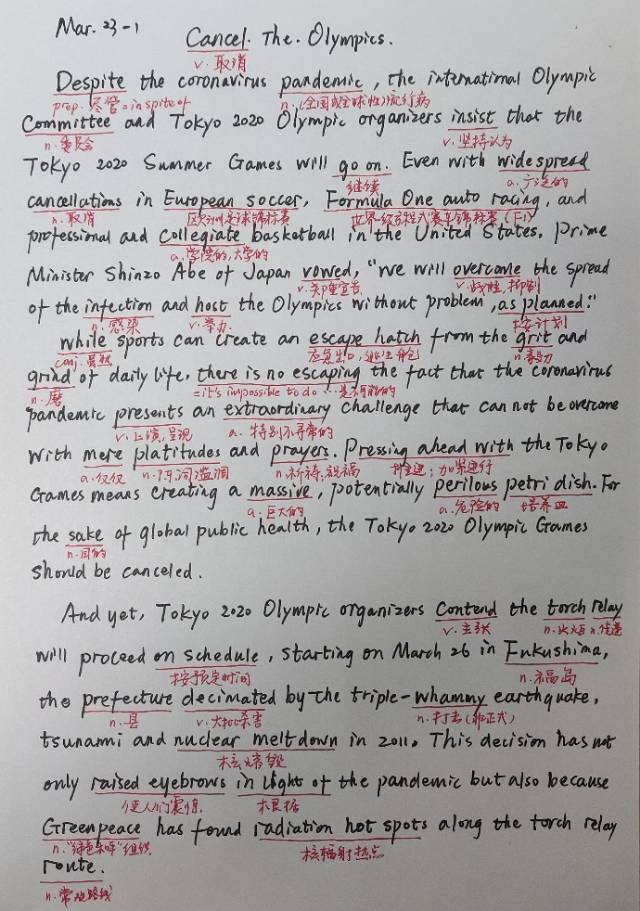 Mar. 23-1
Cancel. The. Olympics.
v. 取消
Despite the coronavirus pandemic, the international Olympic
prep. 尽管 = in spite of n. (全国或全球性)流行病
Committee and Tokyo 2020 Olympic organizers insist that the
n. 委员会 v. 坚持认为
Tokyo 2020 Summer Games will go on. Even with widespread
继续 a. 广泛的
cancellations in European soccer, Formula One auto racing, and
n. 取消 欧洲足球锦标赛 世界一级方程式赛车锦标赛 (F1)
professional and collegiate basketball in the United States. Prime
a. 学院的, 大学的
Minister Shinzo Abe of Japan vowed, "we will overcome the spread
v. 郑重宣告 v. 战胜, 抑制
of the infection and host the Olympics without problem, as planned."
n. 感染 v. 举办 按计划
while sports can create an escape hatch from the grit and
conj. 虽然 应急出口, 逃生舱 n.
grind of daily life, there is no escaping the fact that the coronavirus
n. 磨 = it's impossible to do …是不可能的
pandemic presents an extraordinary challenge that can not be overcome
v. 上演, 呈现 a. 特别不寻常的
with mere platitudes and prayers. Pressing ahead with the Tokyo
a. 仅仅 n. 陈词滥调 n. 祈祷, 祝福 推进; 加紧进行
Games means creating a massive, potentially perilous petri dish. For
a. 巨大的 a. 危险的 培养皿
the sake of global public health, the Tokyo 2020 Olympic Games
n. 目的
should be canceled.
And yet, Tokyo 2020 Olympic organizers contend the torch relay
v. 主张 n. 火炬 n. 传递
will proceed on schedule, starting on March 26 in Fukushima,
按预定时间 n. 福岛
the prefecture decimated by the triple-whammy earthquake,
n. 县 v. 大批杀害 n. 打击 (非正式)
tsunami and nuclear meltdown in 2011. This decision has not
核
only raised eyebrows in light of the pandemic but also because
使人们震惊 根据
Greenpeace has found radiation hot spots along the torch relay
n. "绿色和平"组织 核辐射热点
route.
n. 常规路线